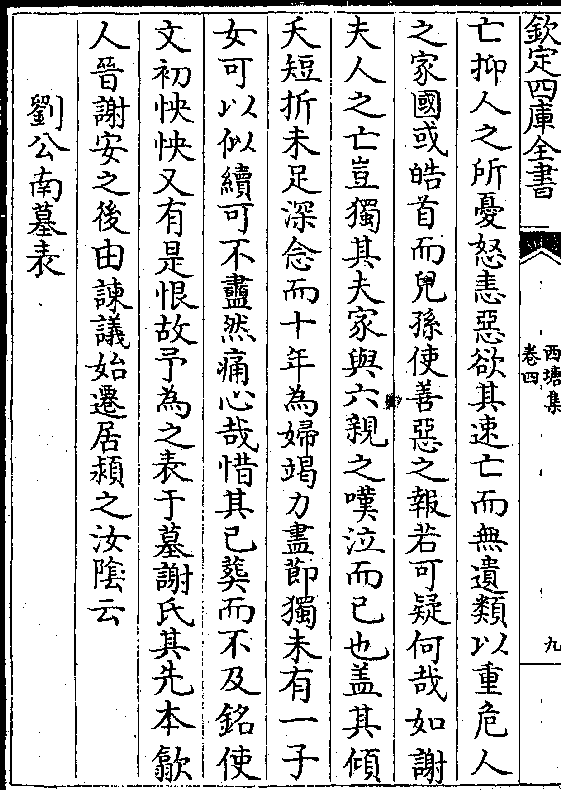 欽定四庫全書
西塘集
卷四
九
亡抑人之所憂怒恚惡欲其速亡而無遺類以重危人
之家國或皓首而兒孫使善惡之報若可疑何哉如謝
夫人之亡豈獨其夫家與六親之嘆泣而已也盖其傾
夭短折未足深念而十年為婦竭力盡節獨未有一子
女可以似續可不衋然痛心哉惜其已葬而不及銘使
文初怏怏又有是恨故予為之表于墓謝氏其先本歙
人晉謝安之後由諫議始遷居潁之汝隂云
劉公南墓表